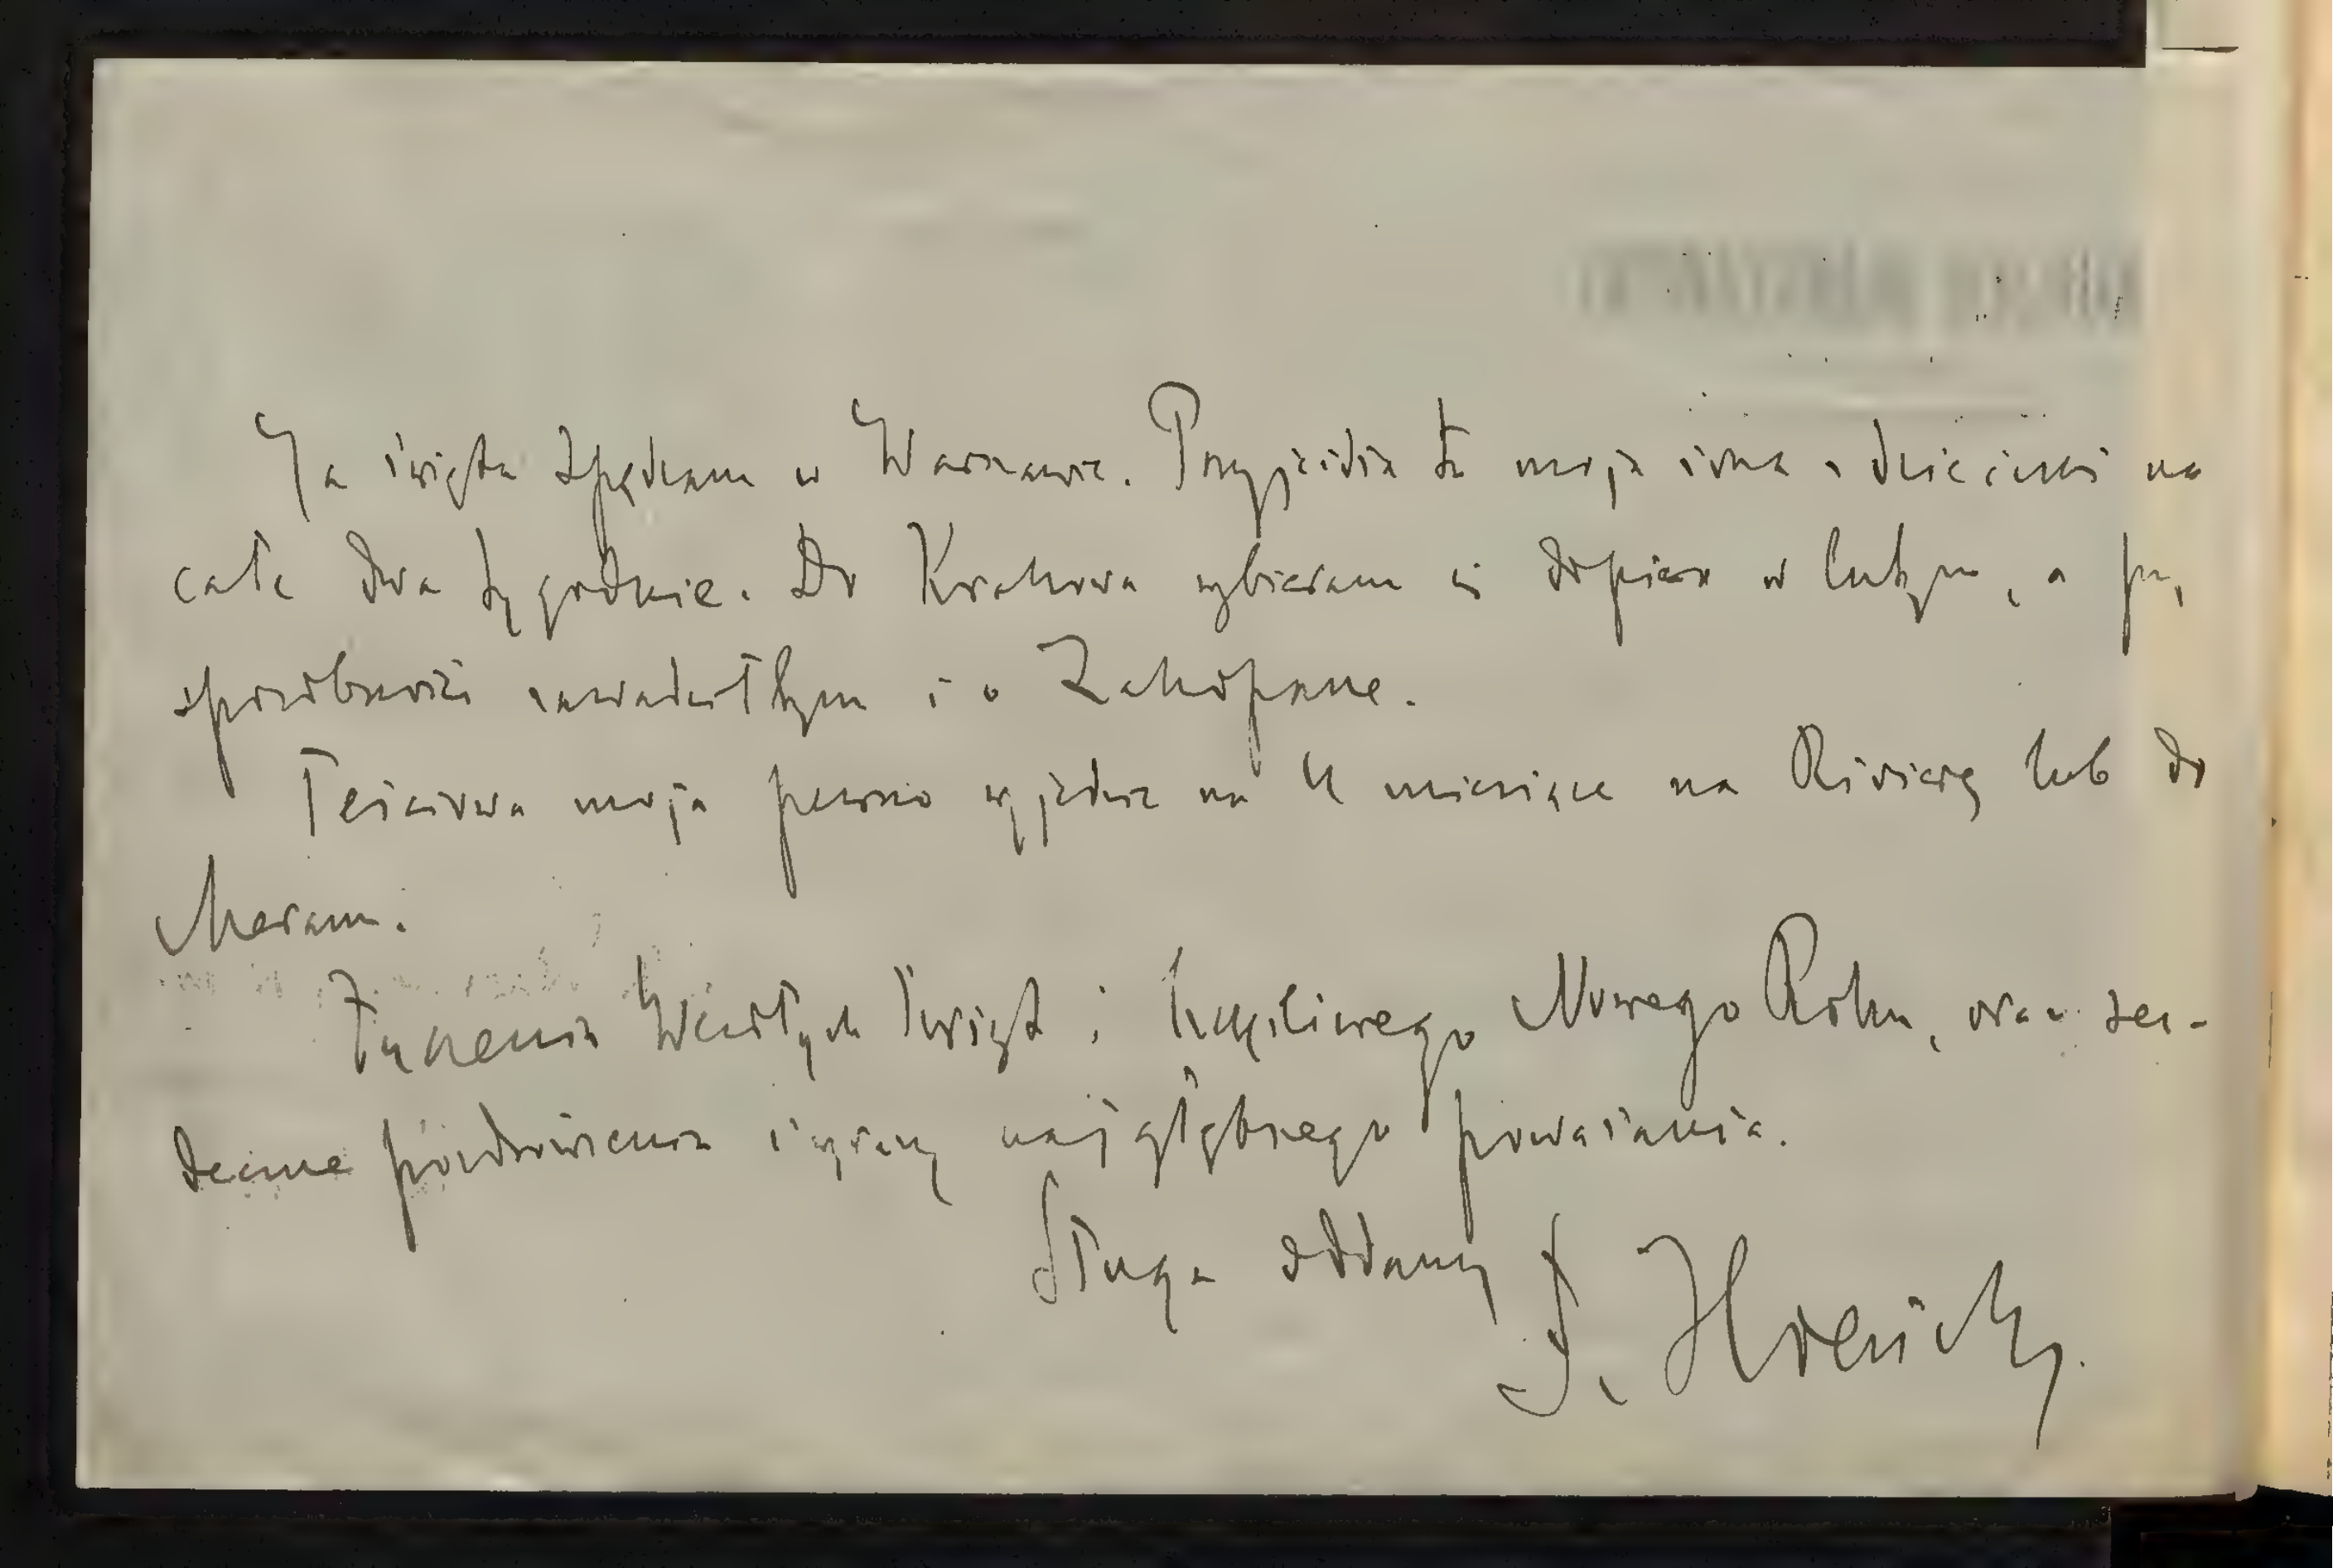 Ja święta spędzam w Warszawie. Przyjeżdża tu moja żona z dzieckiem na
całe dwa tygodnie. Do Krakowa wybieram się dopiero w lutym, a przy
sposobności zawadziłbym i o Zakopane.
Teściowa moja pewno wyjedzie na 4 miesiące na Rivierę lub do
Meranu.
Życzenia Wesołych Świąt i szczęśliwego Nowego Roku, oraz ser-
deczne pozdrowienia i wyrazy najgłębszego poważania.
Sługa oddany F. Hoesick.